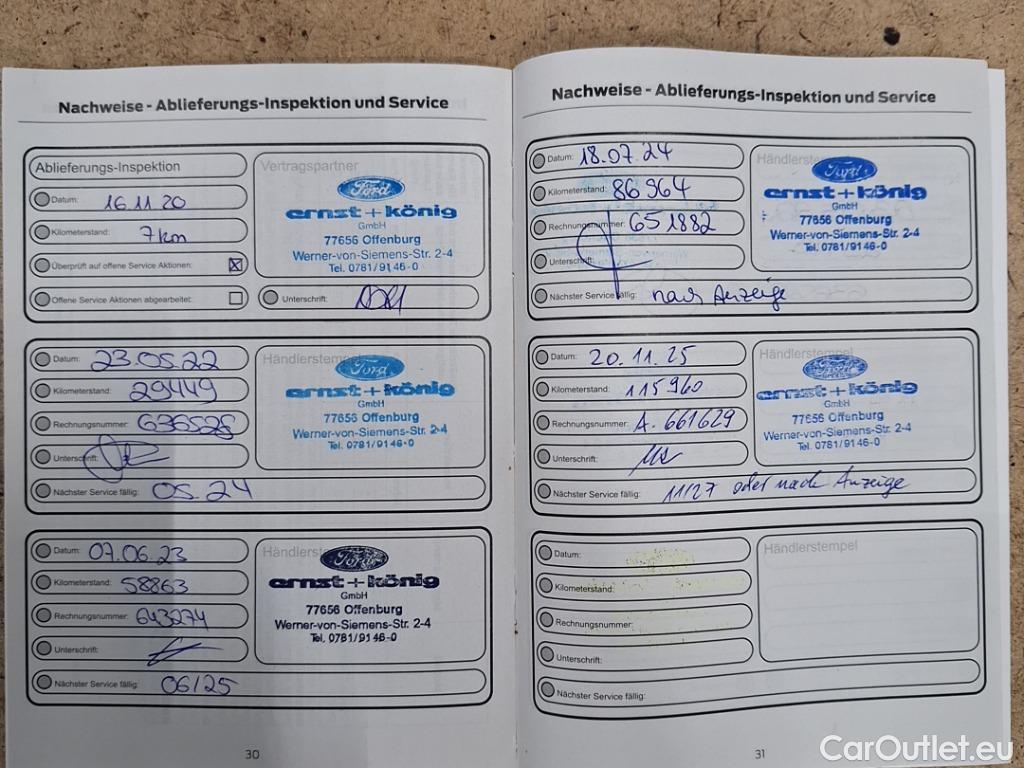 Nachweise - Ablieferungs-Inspektion und Service
Ablieferungs-Inspektion
Datum: 16.11.20
Kilometerstand: 7km
Überprüft auf offene Service Aktionen:
Offene Service Aktionen abgearbeitet:
Vertragspartner
Ford
ernst+könig
GmbH
77656 Offenburg
Werner-von-Siemens-Str. 2-4
Tel. 0781/9146-0
Unterschrift:
Datum: 23.05.22
Kilometerstand: 29449
Rechnungsnummer: 636528
Unterschrift:
Nächster Service fällig: 05.24
Händlerstempel
Ford
ernst+könig
GmbH
77656 Offenburg
Werner-von-Siemens-Str. 2-4
Tel. 0781/9146-0
Datum: 07.06.23
Kilometerstand: 58863
Rechnungsnummer: 643274
Unterschrift:
Nächster Service fällig: 06/25
Händlerst
Ford
ernst+könig
GmbH
77656 Offenburg
Werner-von-Siemens-Str. 2-4
Tel. 0781/9146-0
30
Nachweise - Ablieferungs-Inspektion und Service
Datum: 18.07.24
Kilometerstand: 86964
Rechnungsnummer: 651882
Unterschrift:
Nächster Service fällig: nach Anzeige
Händlerst
Ford
ernst+könig
GmbH
77656 Offenburg
Werner-von-Siemens-Str. 2-4
Tel. 0781/9146-0
Datum: 20.11.25
Kilometerstand: 115960
Rechnungsnummer: A. 661629
Unterschrift:
Nächster Service fällig: 11/27 oder nach Anzeige
Händlerstempel
Ford
ernst+könig
GmbH
77656 Offenburg
Werner-von-Siemens-Str. 2-4
Tel. 0781/9146-0
Datum:
Kilometerstand:
Rechnungsnummer:
Unterschrift:
Nächster Service fällig:
Händlerstempel
31
CarOutlet.eu